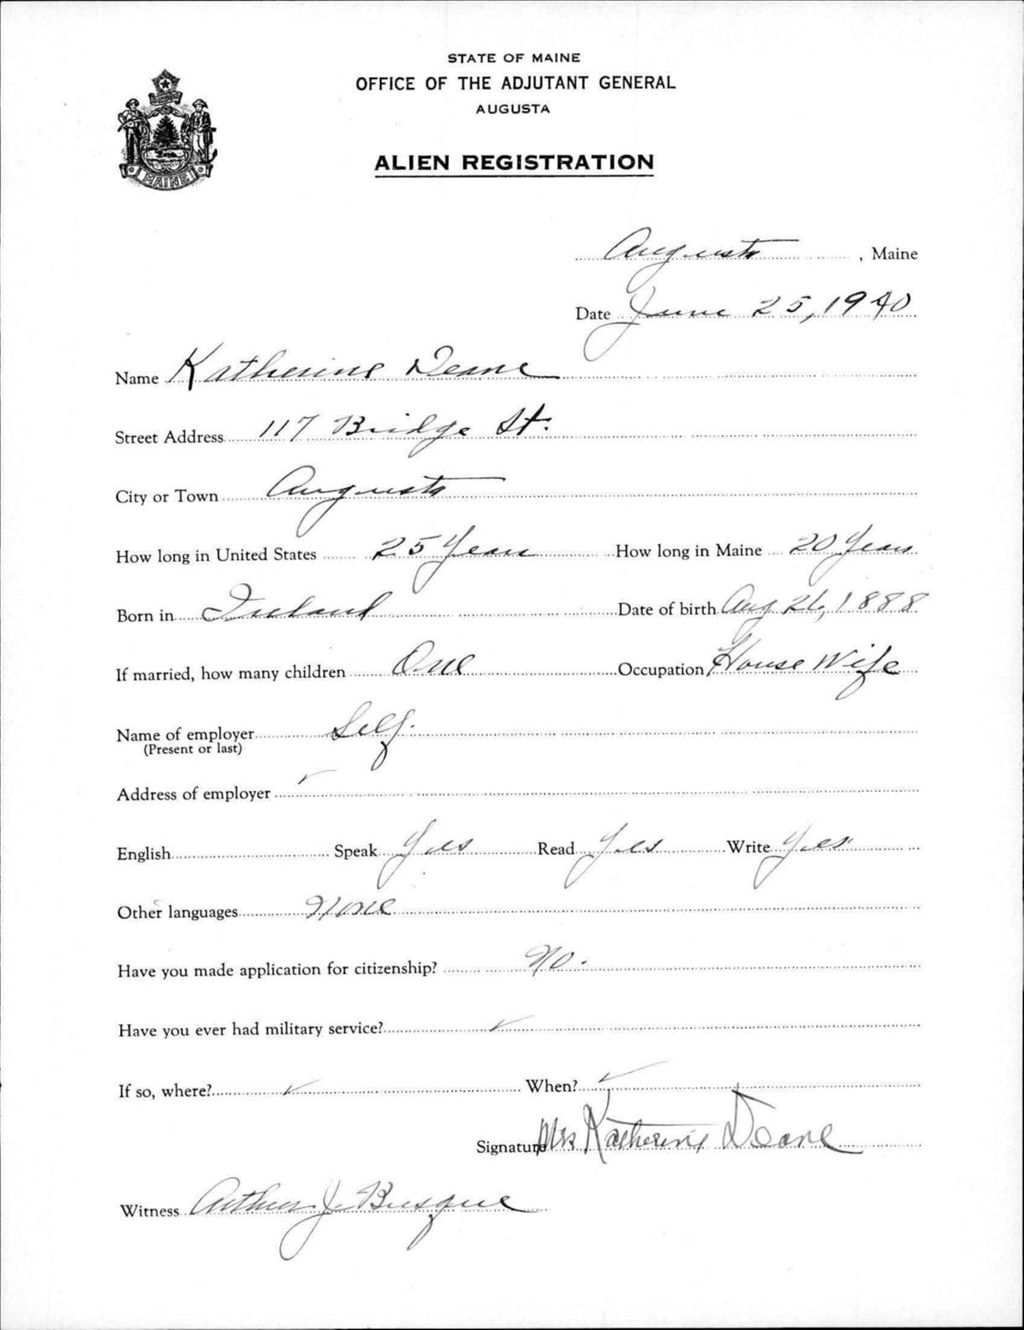 STATE OF MAINE
OFFICE OF THE ADJUTANT GENERAL
AUGUSTA
ALIEN REGISTRATION
MAINE
Augusta, Maine
Date June 25, 1940
Name Katherine Deane
Street Address 117 Bridge St.
City or Town Augusta
How long in United States 25 Years How long in Maine 20 Years
Born in Ireland Date of birth Aug 26, 1888
If married, how many children One Occupation House Wife
Name of employer Self.
(Present or last)
Address of employer ✓
English Speak Yes Read Yes Write Yes
Other languages None
Have you made application for citizenship? No.
Have you ever had military service? ✓
If so, where? ✓ When? ✓
Signature Mrs Katherine Deane
Witness Arthur J. Busque